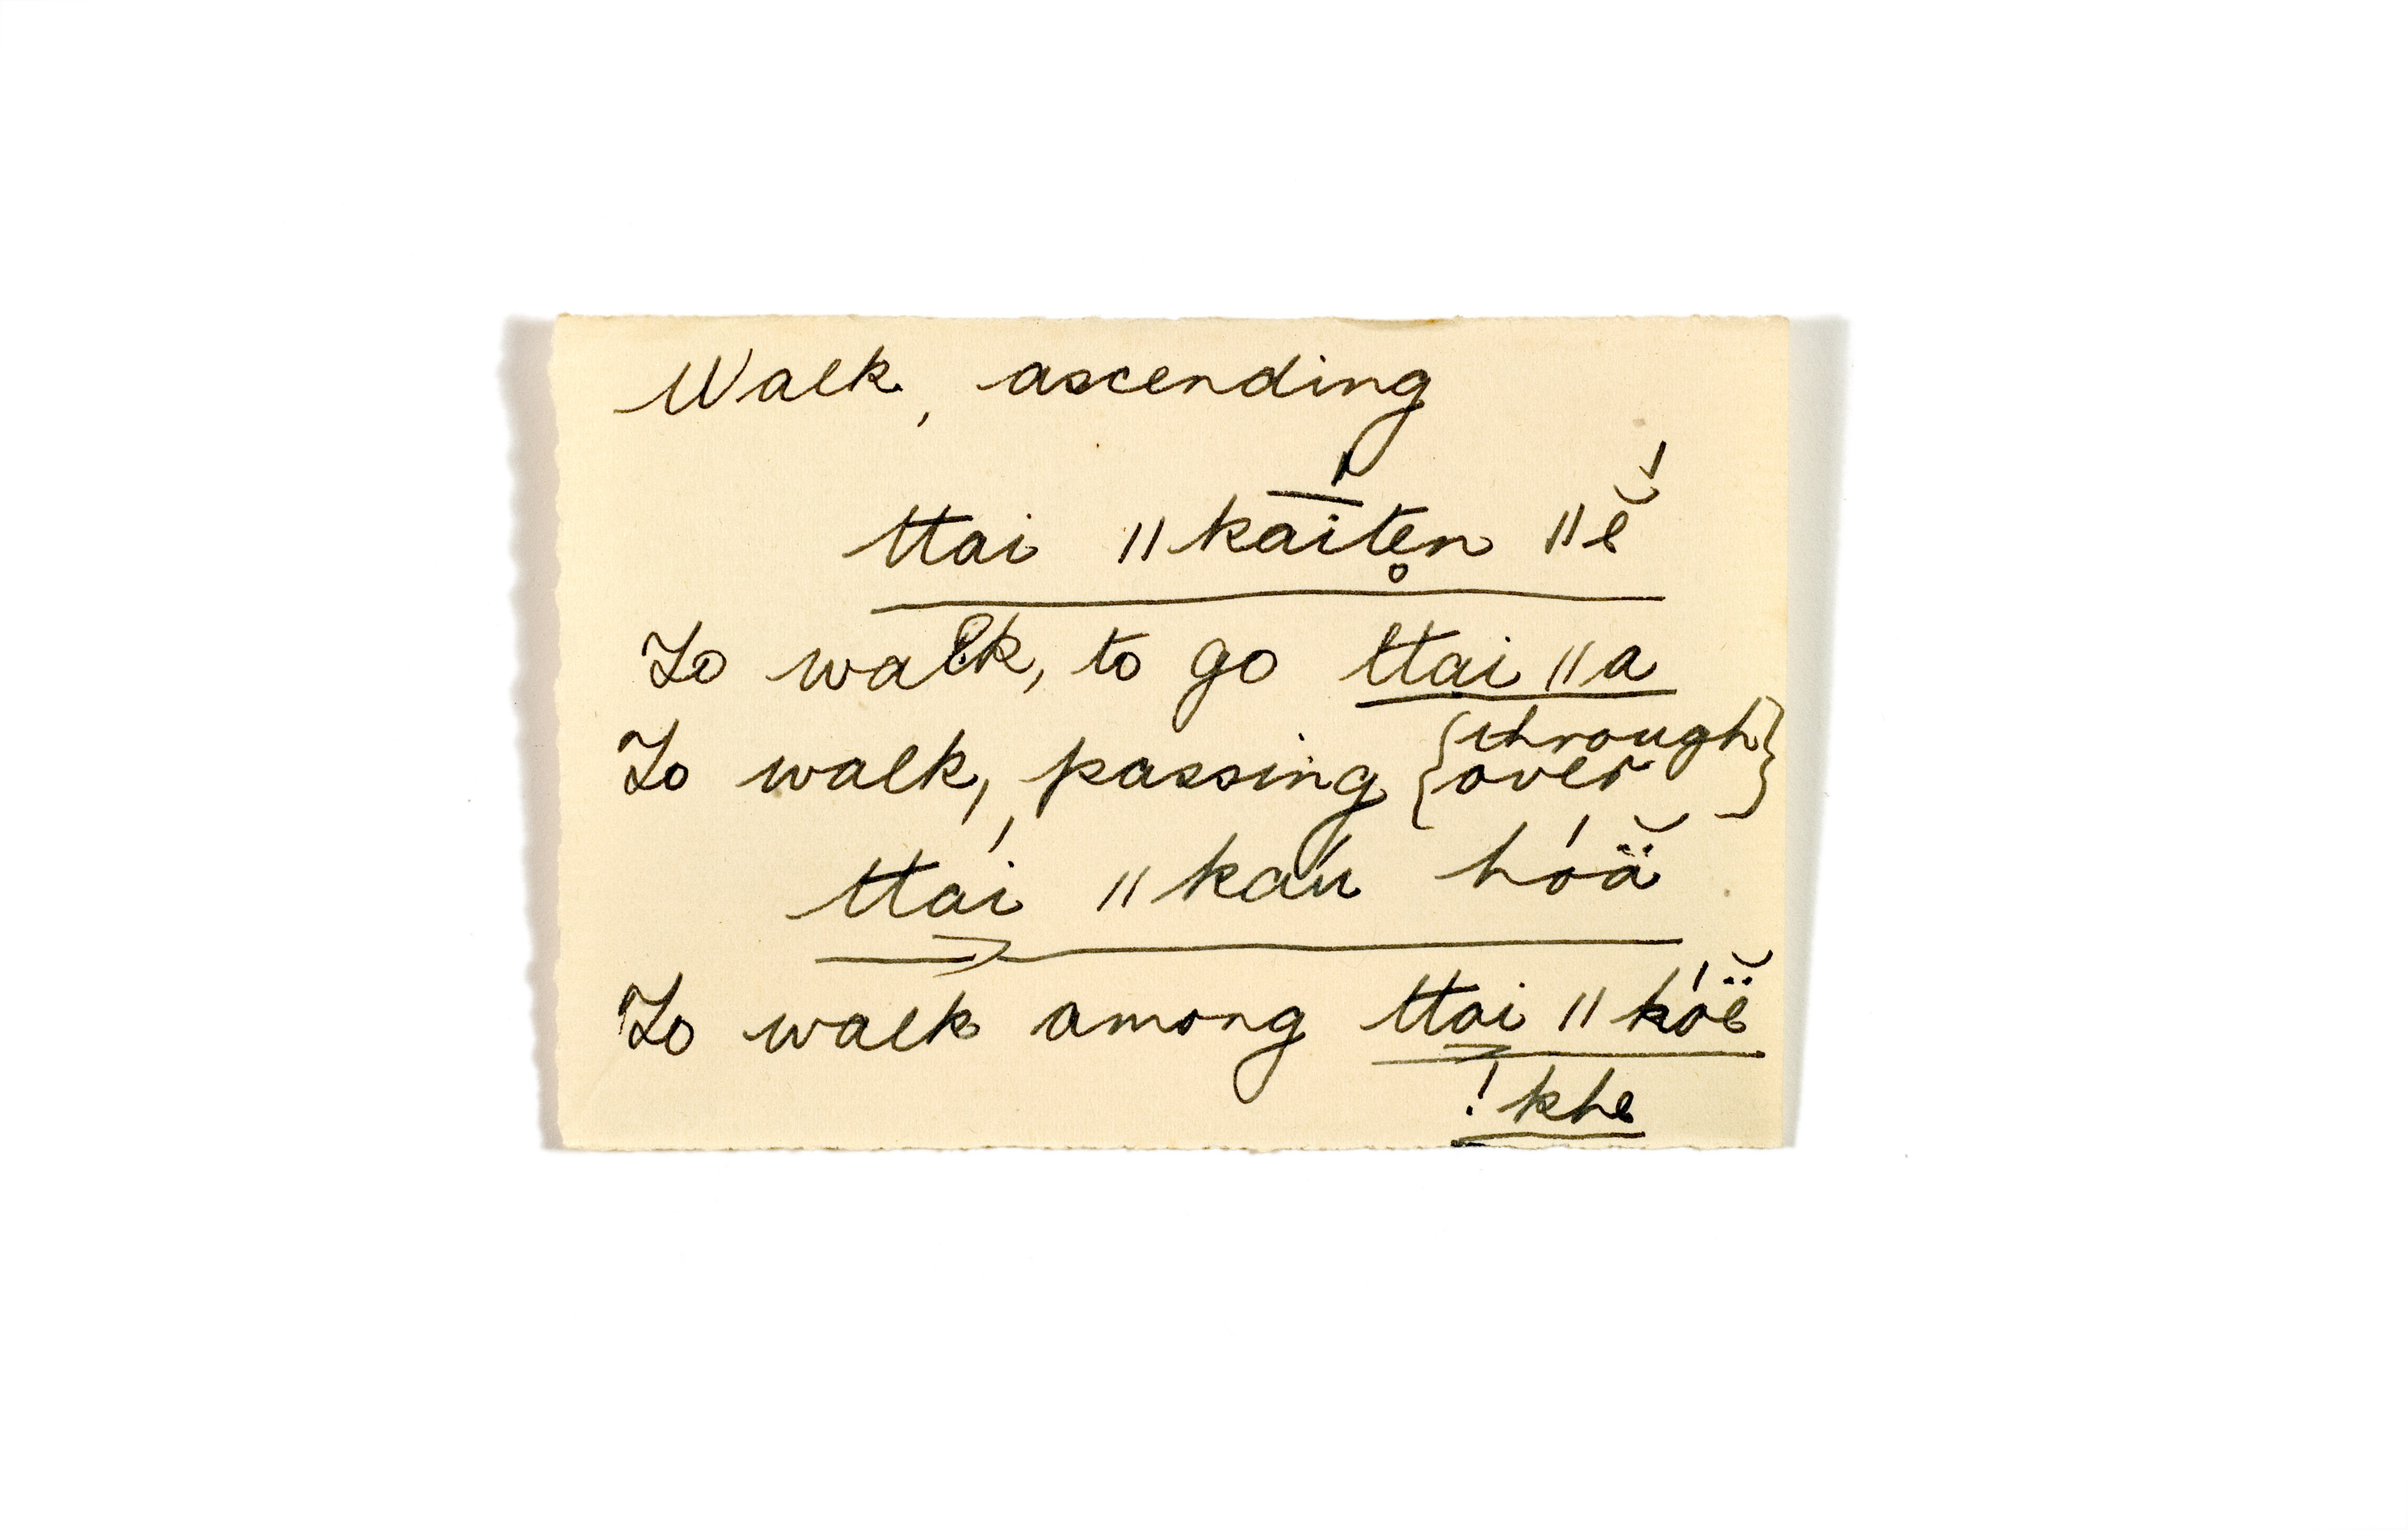 Walk, ascending
ttai ǁkā́ite̥n ǁĕ́
To walk, to go ttai ǁa
To walk, passing {through
over}
ttaí ǁkaú hóä̆
To walk among ttai ǁkóë̆
!khe